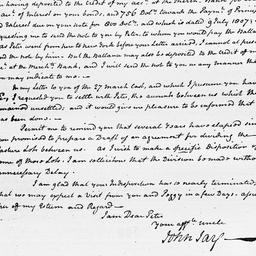 having deposited to the credit of my acct. at the March. Bank for
act of Interest on your bond, & 786 Dolls. towards the Payment of Princip
and Interest due on your note for 800 Dolls. and which is dated 9 July 1807;
questing me to send the note to you by Peter, to whom you would pay the Ballance
As Peter went from here to new york before your Letter arrived, I cannot at present
send the note by him. But the Ballance may also be deposited to the credit of my
acct. at the March. Bank, and I will send the note to you in any manner that
you may indicate to me.—
In my Letter to you of the 27 March last, and which I presume you have
I requested you to settle with Peter, the account between us which
remained unsettled; and it would give me pleasure to be informed that
has been done.—
Permit me to remind you that several Years have elapsed since
you promised to prepare a Draft of an agreement for dividing the
Pasture Lots between us. As I wish to make a specific Disposition of
some of those Lots, I am sollicitous that the Division be made without
unnecessary Delay.
I am glad that your Indisposition has so nearly terminated,
that we may expect a Visit from you and Peggy in a few days.
of my Esteem and Regard—
I am Dear Peter
Your affte. uncle
John Jay—